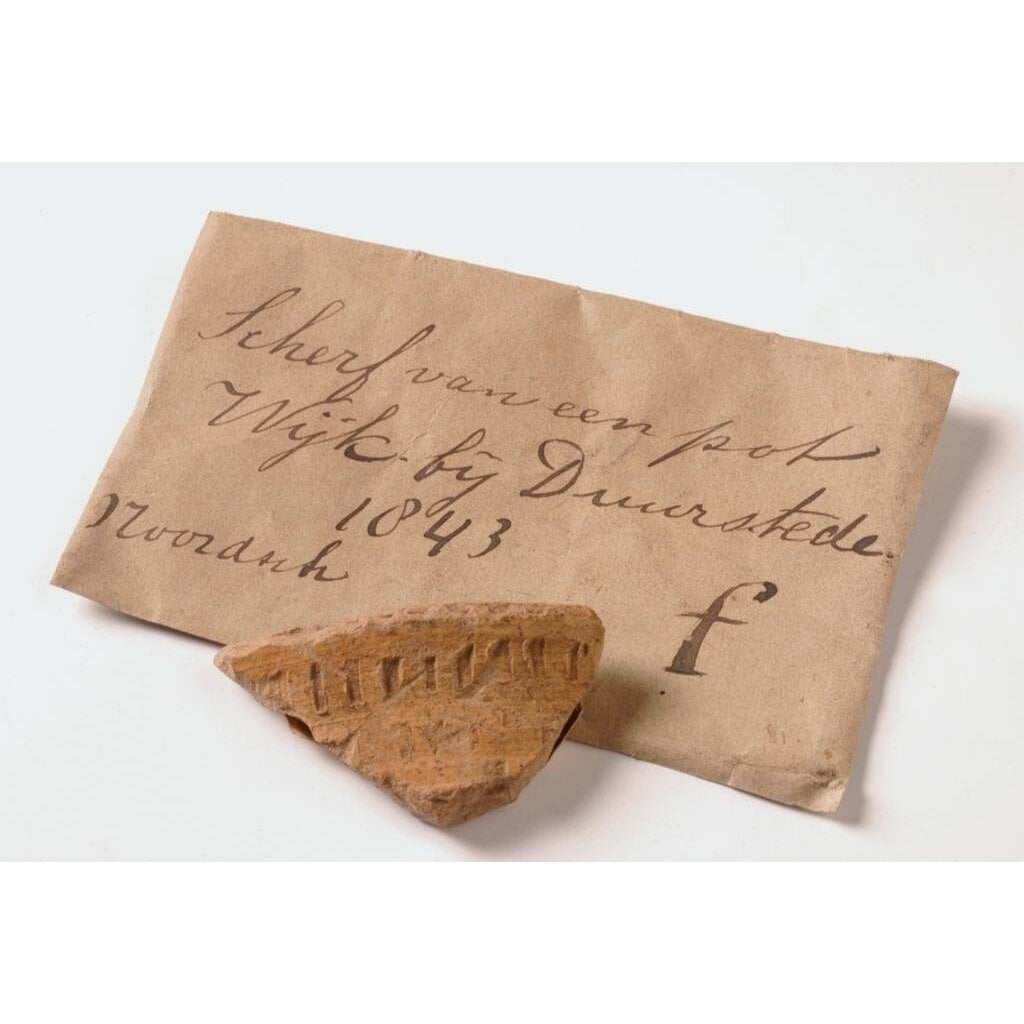 Scherf van een pot
Wijk bij Duurstede.
1843
Noordsch
f